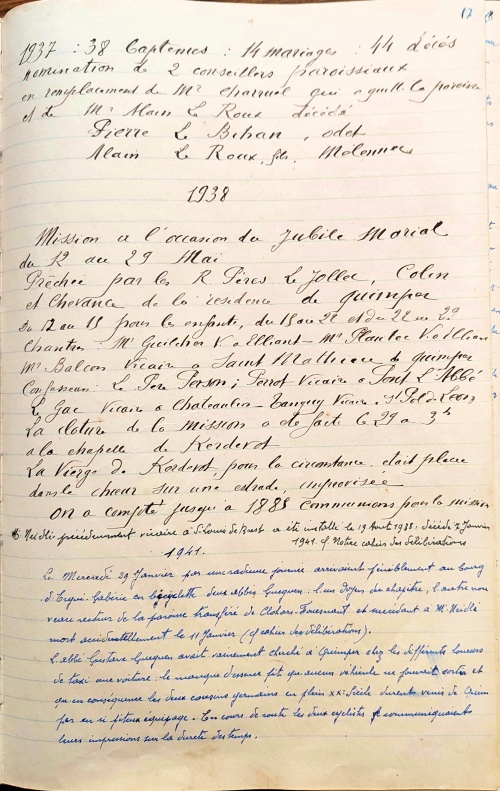 17
1937 : 38 Baptêmes : 14 mariages : 44 décés
nomination de 2 conseillers paroissiaux
en remplacement de Mr Charruel qui a quitté la paroisse
et de Mr Alain Le Roux décédé
Pierre Le Bihan, odet
Alain Le Roux, fils, Melennec
1938
Mission a l'occasion du Jubilé Marial
du 12 au 29 Mai
Prêchée par les R. Pères Le Jollec, Colin
et Chevance de la residence de quimper
Du 12 au 15 pour les enfants, du 15 au 22 et du 22 au 29
Chantres Mr Guilcher V. a Elliant - Mr V. a Elliant
Mr Balcon Vicaire a Saint Mathieu de quimper
Confesseurs : Le Père Person ; Perrot Vicaire a Pont L'Abbé
Le Gac Vicaire a Chateaulin - Tanguy Vicaire a St Pol de Léon
La cloture de la mission a été faite le 29 a 3h
a la chapelle de Kerdevot
La Vierge de Kerdevot, pour la circonstance, était placée
dans le chœur sur une estrade improvisée
on a compté jusqu'a 1885 communions pour la mission
Mr Neidlé précédemment vicaire à St Louis de Brest a été installé le 19 Avril 1938 : décédé 7 Janvier
1941. Cf Notre cahier des délibérations
1941.
Le Mercredi 29 Janvier par une radieuse journée arrivaient péniblement au bourg
d'Ergué-Gabéric en bicyclette deux abbés Gueguen : l'un doyen du chapitre, l'autre nou-
veau recteur de la paroisse transféré de Clohars-Fouesnant et succédant à Mr Neidlé
mort accidentellement le 11 Janvier (cf cahier des délibérations).
L'abbé Gustave Gueguen avait vainement cherché à Quimper chez les différents loueurs
de taxi une voiture : le manque d'essence fit qu'aucun véhicule ne pouvait sortir et
qu'en conséquence les deux cousins germains en plein XXe siècle durent venir de Quim-
per en si piteux équipage. En cours de route les deux cyclistes se communiquaient
leurs impressions sur la dureté des temps.